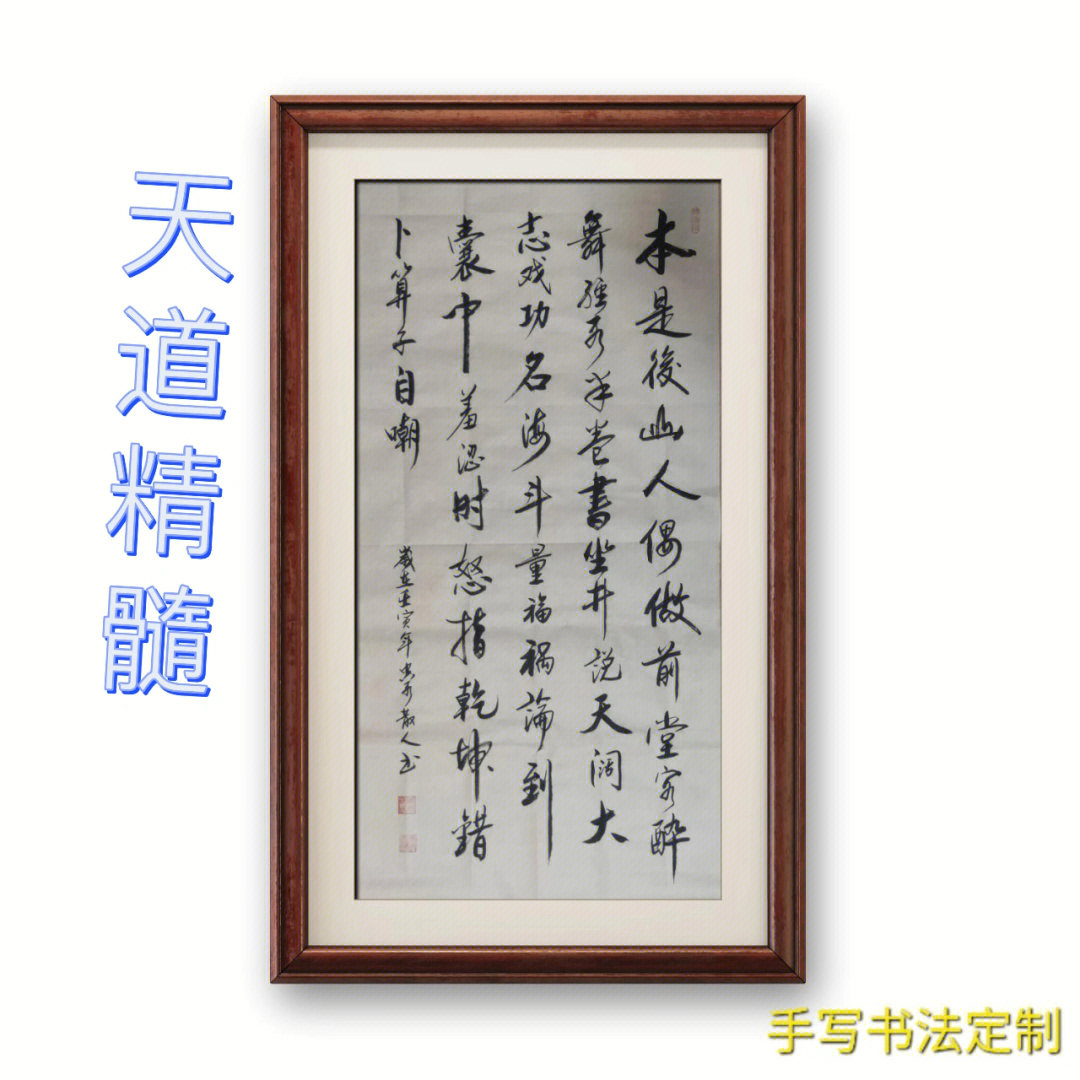 天道精髓
本是後山人偶做前堂客醉
舞經阁半卷書坐井説天阔大
志戏功名海斗量福祸論到
囊中羞涩时怒指乾坤錯
卜算子自嘲
歲在壬寅年散人书
手写书法定制